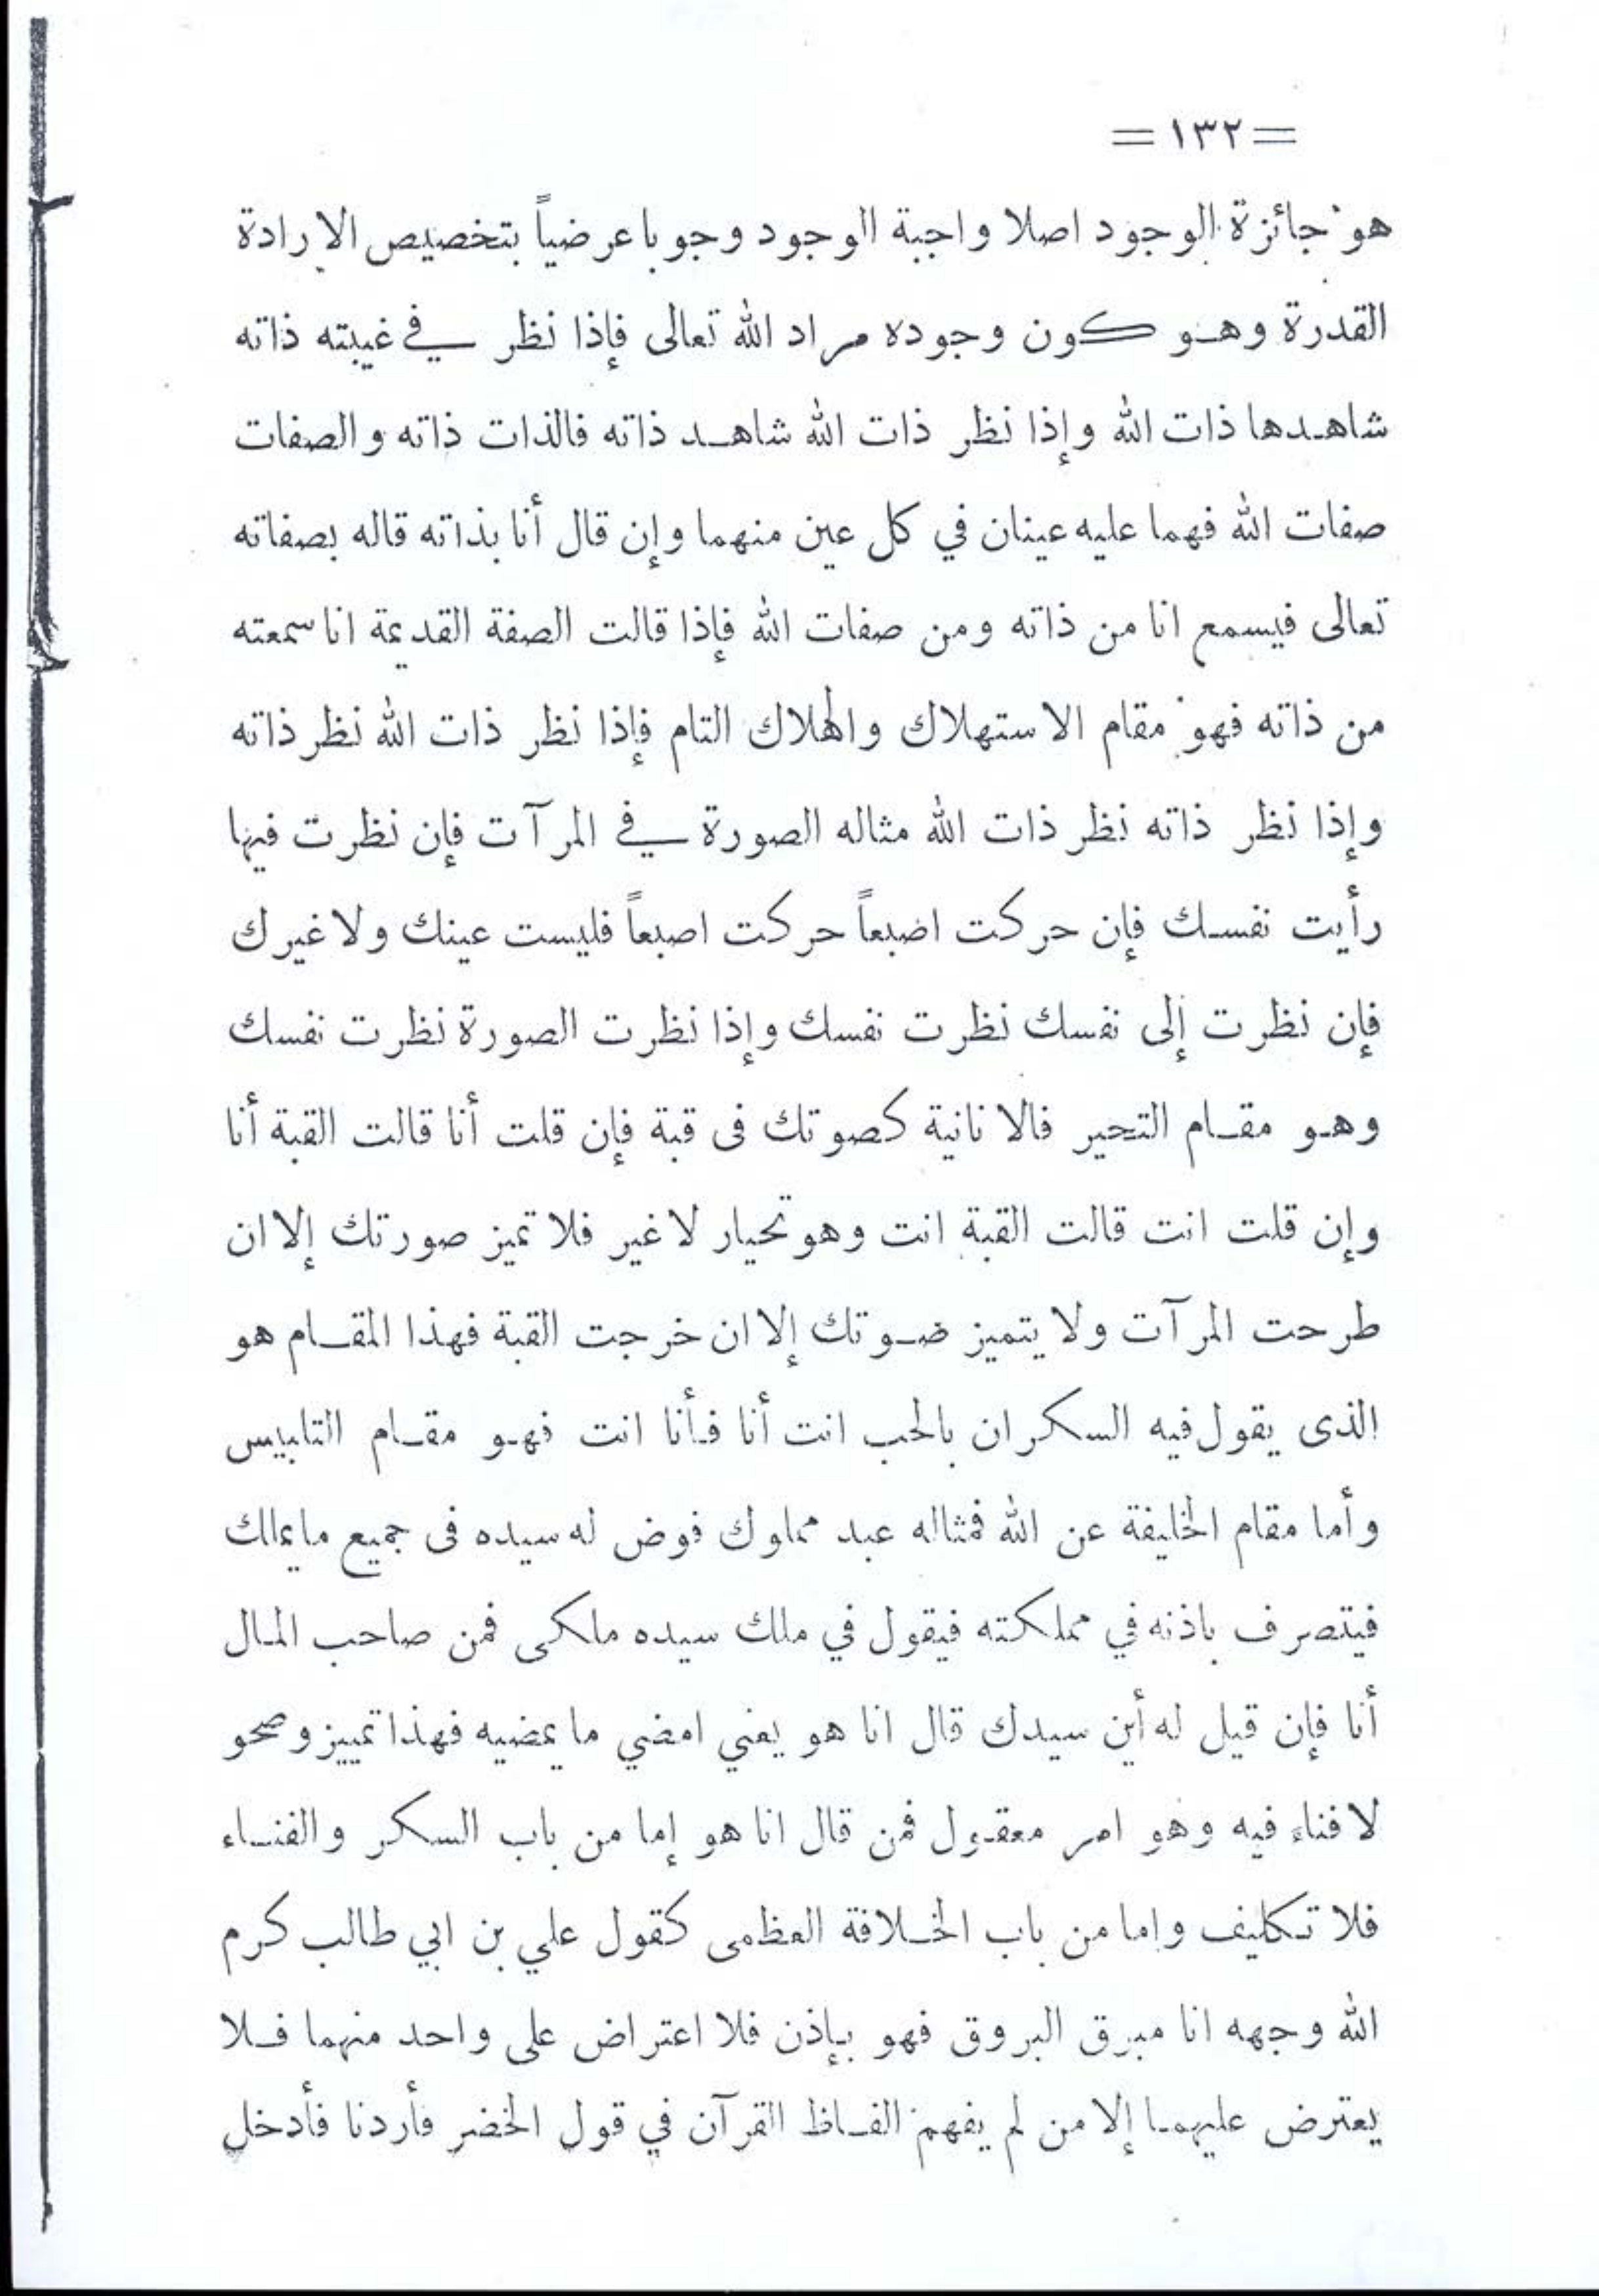 =١٣٢=
هو جائزة الوجود اصلا واجبة الوجود وجوبا عرضياً بتخصيص الارادة
القدرة وهو كون وجوده مراد الله تعالى فإذا نظر في غيبته ذاته
شاهدها ذات الله وإذا نظر ذات الله شاهد ذاته فالذات ذاته والصفات
صفات الله فهما عليه عينان في كل عين منهما وإن قال أنا بذاته قاله بصفاته
تعالى فيسمع انا من ذاته ومن صفات الله فإذا قالت الصفة القديمة انا سمعته
من ذاته فهو مقام الاستهلاك والهلاك التام فإذا نظر ذات الله نظر ذاته
وإذا نظر ذاته نظر ذات الله مثاله الصورة في المرآت فإن نظرت فيها
رأيت نفسك فإن حركت اضبعاً حركت اصبعاً فليست عينك ولا غيرك
فإن نظرت إلى نفسك نظرت نفسك وإذا نظرت الصورة نظرت نفسك
وهو مقام التحير فالانانية كصوتك فى قبة فإن قلت أنا قالت القبة أنا
وإن قلت انت قالت القبة انت وهو تحيار لا غير فلا تميز صورتك إلا ان
طرحت المرآت ولا يتميز ضوتك إلا ان خرجت القبة فهذا المقام هو
الذى يقول فيه السكران بالحب انت أنا فأنا انت فهو مقام التلبيس
وأما مقام الخليفة عن الله فمثاله عبد مملوك فوض له سيده فى جميع ما يملك
فيتصرف باذنه في مملكته فيقول في ملك سيده ملكى فمن صاحب المال
أنا فإن قيل له أين سيدك قال انا هو يعني امضي ما يمضيه فهذا تمييز وصحو
لا فناء فيه وهو امر معقول فمن قال انا هو إما من باب السكر والفناء
فلا تكليف واما من باب الخلافة العظمى كقول علي بن ابي طالب كرم
الله وجهه انا مبرق البروق فهو بإذن فلا اعتراض على واحد منهما فلا
يعترض عليهما إلا من لم يفهم الفاظ القرآن في قول الخضر فأردنا فأدخل